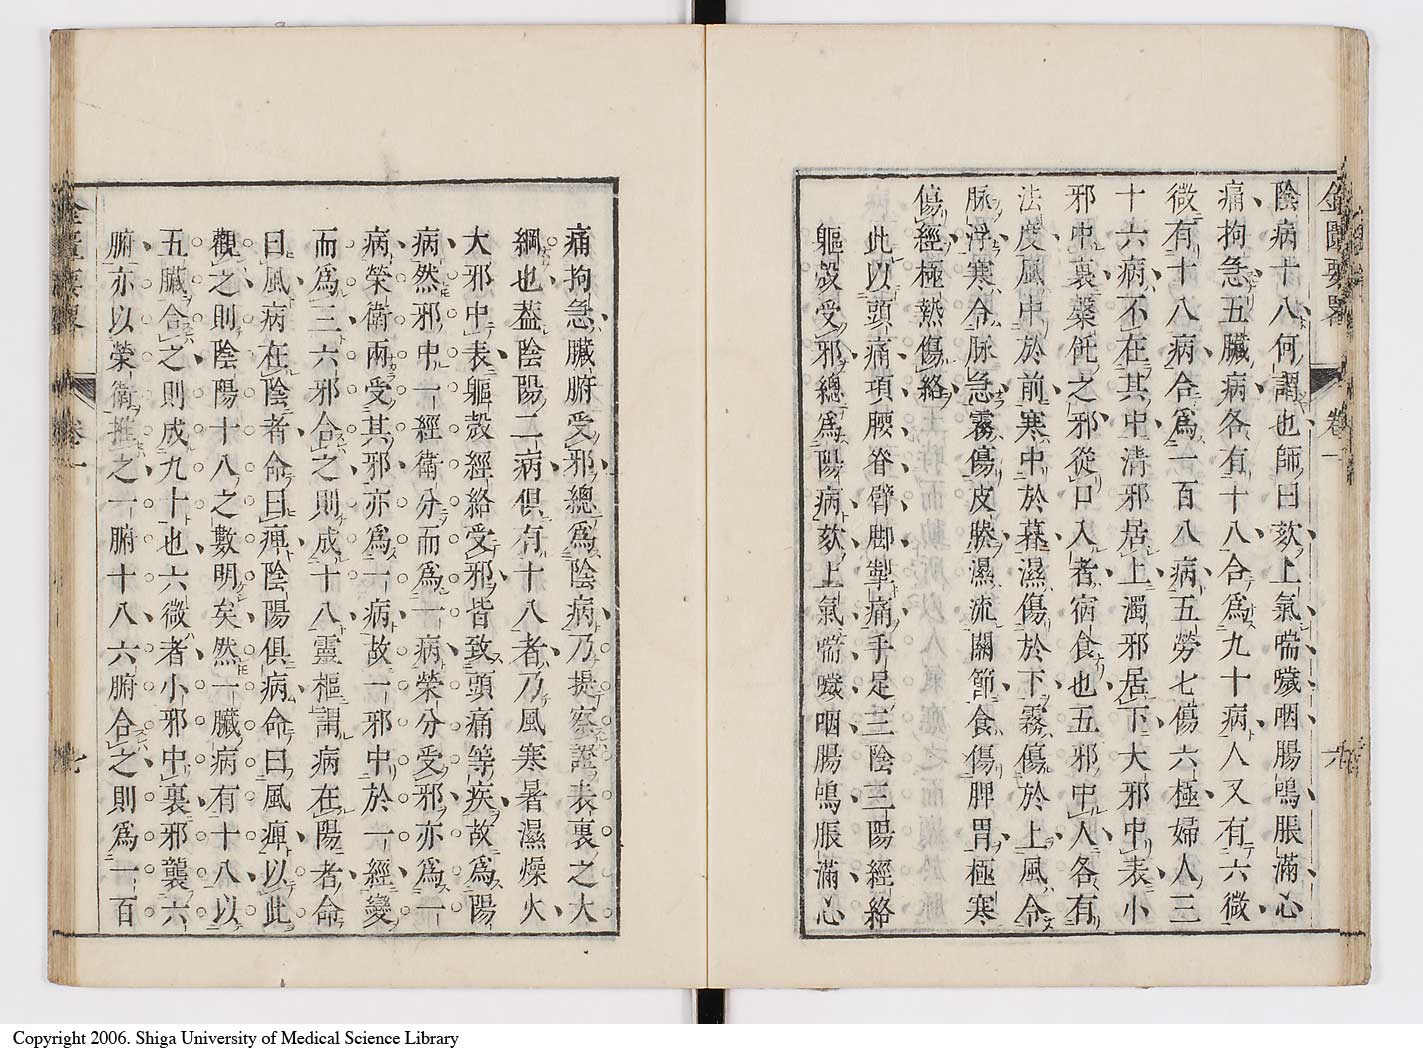 金匱要畧 卷一 六
陰病十八何謂也師曰欬上氣喘噦咽腸鳴脹滿心
痛拘急五臟病各有十八合爲九十病人又有六微
微有十八病合爲一百八病五勞七傷六極婦人三
十六病不在其中清邪居上濁邪居下大邪中表小
邪中裏䅽飥之邪從口入者宿食也五邪中人各有
法度風中於前寒中於暮濕傷於下霧傷於上風令
脉浮寒令脉急霧傷皮腠濕流關節食傷脾胃極寒
傷經極熱傷絡
此以頭痛項腰脊臂脚掣痛手足三陰三陽經絡
軀殼受邪總爲陽病欬上氣喘噦咽腸鳴脹滿心
痛拘急臟腑受邪總爲陰病乃提察證表裏之大
綱也葢陰陽二病俱有十八者乃風寒暑濕燥火
大邪中表軀殼經絡受邪皆致頭痛等疾故爲陽
病然邪中一經衛分而爲一病榮分受邪亦爲一
病榮衛兩受其邪亦爲一病故一邪中於一經變
而爲三六邪合之則成十八靈樞謂病在陽者命
曰風病在陰者命曰痺陰陽俱病命曰風痺以此
觀之則陰陽十八之數明矣然一臟病有十八以
五臟合之則成九十也六微者小邪中裏邪襲六
腑亦以榮衛推之一腑十八六腑合之則爲一百
金匱要畧 卷一 七
Copyright 2006. Shiga University of Medical Science Library